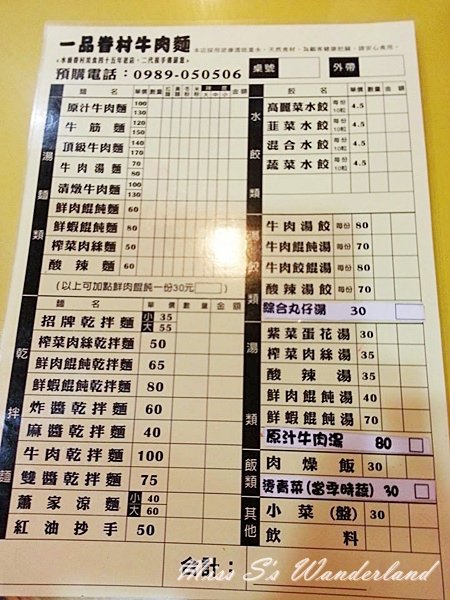 一品眷村牛肉麵
本店採用逆滲透過濾水，天然食材，為顧客健康把關，請安心食用。
預購電話：0989-050506
桌號 外帶
麵名 單價 數量 金額
湯麵類
原汁牛肉麵 100 130
牛筋麵 120 140
頂級牛肉麵 140 170
牛肉湯麵 70
清燉牛肉麵 100 130
鮮肉餛飩麵 60
鮮蝦餛飩麵 80
榨菜肉絲麵 50
酸辣麵 60
(以上可加點鮮肉餛飩一份30元)
麵名 單價 數量 金額
乾拌麵
招牌乾拌麵 小 35 大 55
榨菜肉絲乾拌麵 50
鮮肉餛飩乾拌麵 65
鮮蝦餛飩乾拌麵 80
炸醬乾拌麵 60
麻醬乾拌麵 40
牛肉乾拌麵 100
雙醬乾拌麵 75
蕭家涼麵 小 40 大 60
紅油抄手 50
餃名 單價 數量 金額
水餃類
高麗菜水餃 每份10粒 4.5
韭菜水餃 每份10粒 4.5
混合水餃 每份10粒 4.5
蔬菜水餃 每份10粒 4.5
牛肉湯餃 每份 80
牛肉餛飩湯 每份 70
牛肉餃餛湯 每份 80
酸辣湯餃 每份 70
綜合丸仔湯 30
湯類
紫菜蛋花湯 30
榨菜肉絲湯 35
酸辣湯 35
鮮肉餛飩湯 40
鮮蝦餛飩湯 70
原汁牛肉湯 80
飯類
肉燥飯 30
燙青菜(當季時蔬) 30
其他
小菜(盤) 30
飲料
合計：
Miss S's Wanderland